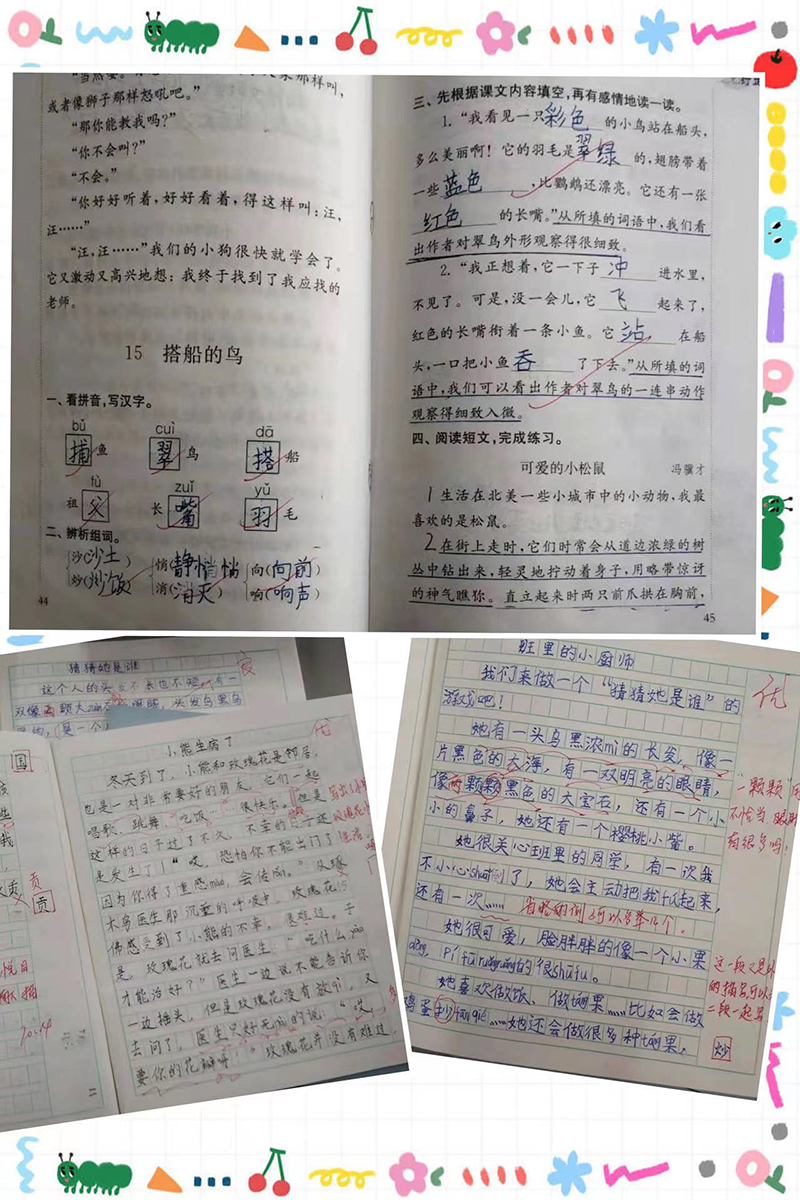 或者像狮子那样怒吼吧。”
“那你能教我吗？”
“你不会叫？”
“不会。”
“你好好听着，好好看着，得这样叫：汪，
汪……”
“汪，汪……”我们的小狗很快就学会了。
它又激动又高兴地想：我终于找到了我应找的
老师。
15 搭船的鸟
一、看拼音，写汉字。
bǔ cuì dā
捕鱼 翠鸟 搭船
fù zuǐ yǔ
祖父 长嘴 羽毛
二、辨析组词。
沙(沙土) 悄(静悄悄) 向(向前)
炒(炒饭) 消(消灭) 响(响声)
44
三、先根据课文内容填空，再有感情地读一读。
1. “我看见一只彩色的小鸟站在船头，
多么美丽啊！它的羽毛是翠绿的，翅膀带着
一些蓝色，比鹦鹉还漂亮。它还有一张
红色的长嘴。”从所填的词语中，我们看
出作者对翠鸟外形观察得很细致。
2. “我正想着，它一下子冲进水里，
不见了。可是，没一会儿，它飞起来了，
红色的长嘴衔着一条小鱼。它站在船
头，一口把小鱼吞了下去。”从所填的词
语中，我们可以看出作者对翠鸟的一连串动作
观察得细致入微。
四、阅读短文，完成练习。
可爱的小松鼠 冯骥才
1生活在北美一些小城市中的小动物，我最
喜欢的是松鼠。
2在街上走时，它们时常会从道边浓绿的树
丛中钻出来，轻灵地拧动着身子，用略带惊讶
的神气瞧你。直立起来时两只前爪拱在胸前，
45
猜猜她是谁
这个人的头发不长也不短，有一
国
贡
贡
10.14
优
小熊生病了
冬天到了，小熊和玫瑰花是邻居，
也是一对非常要好的朋友，它们一起
唱歌、跳舞、吃饭……很快乐。但是
这样的日子过了不久，不幸的日子还
是发生了！“哎，恐怕你不能出门了，
因为你得了重感mào，会传rǎn。”从啄
木鸟医生那沉重的呼吸中，玫瑰花仿
佛感受到了小熊的不幸，很难过。于
是，玫瑰花就去问医生：“吃什么yào
才能治好？”医生一边说不能告诉你
一边摇头，但是玫瑰花没有放qì，又
去问了，医生只好无nài的说：“哎，
要你的花瓣呀！”玫瑰花并没有难过，
班里的小厨师
我们来做一个“猜猜她是谁”的
游戏吧！
她有一头乌黑浓mì的长发，像一
片黑色的大海，有一双明亮的眼睛，
像两颗颗黑色的大宝石，还有一个小
小的鼻子，她还有一个樱桃小嘴。
她很关心班里的同学，有一次我
不小心shuāi倒了，她会主动把我fú起来，
还有一次……
省略的例子可以多举几个。
她很可爱，脸胖胖的像一个小果
dòng，pí fū的很shū fu。
她喜欢做饭、做táng果……比如会做
鸡蛋炒fān qié……她还会做很多种táng果，
优
“一颗颗”
不恰当，眼睛
有很多吗？
炒